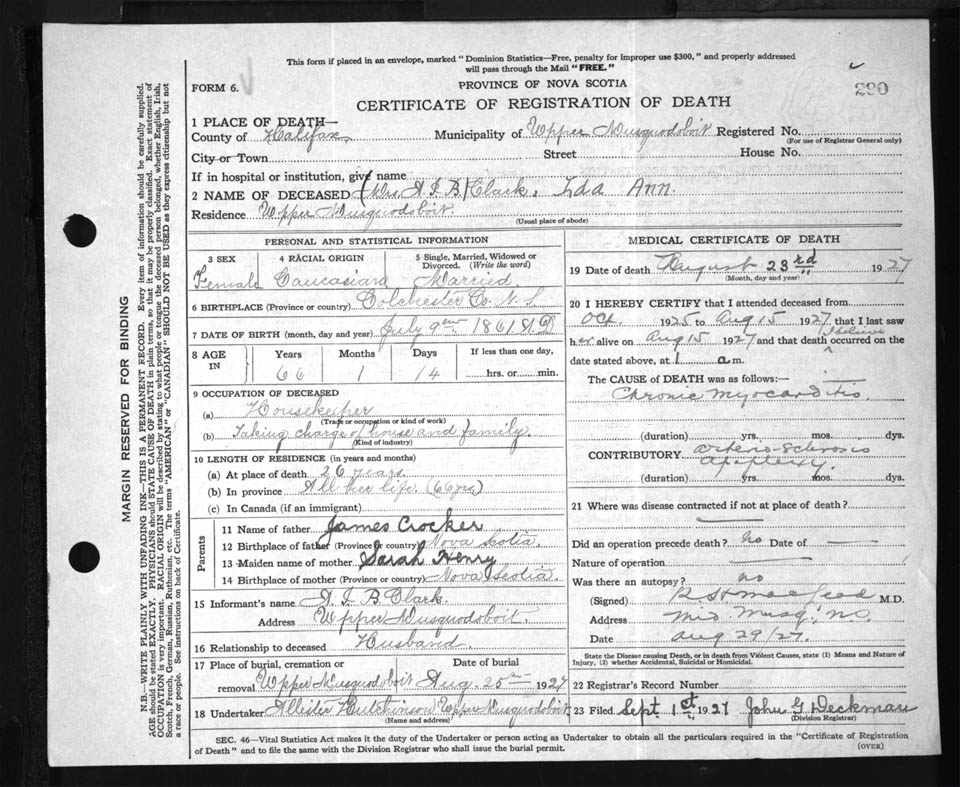 This form if placed in an envelope, marked "Dominion Statistics—Free, penalty for improper use $300," and properly addressed
will pass through the Mail "FREE."
FORM 6.
PROVINCE OF NOVA SCOTIA
290
CERTIFICATE OF REGISTRATION OF DEATH
1 PLACE OF DEATH—
County of Halifax Municipality of Upper Musquodoboit Registered No.
(For use of Registrar General only)
City or Town Street House No.
If in hospital or institution, give name
2 NAME OF DECEASED (Mrs A I B) Clark, Ida Ann.
Residence Upper Musquodoboit.
(Usual place of abode)
PERSONAL AND STATISTICAL INFORMATION
3 SEX 4 RACIAL ORIGIN 5 Single, Married, Widowed or
Divorced. (Write the word)
Female Caucasian Married
6 BIRTHPLACE (Province or country) Colchester Co. N. S.
7 DATE OF BIRTH (month, day and year) July 9 1861
8 AGE IN Years Months Days If less than one day,
66 1 14 hrs. or min.
9 OCCUPATION OF DECEASED
(a) Housekeeper
(Trade or occupation or kind of work)
(b) Taking charge of house and family.
(Kind of industry)
10 LENGTH OF RESIDENCE (in years and months)
(a) At place of death 26 years
(b) In province All her life. (66 yrs)
(c) In Canada (if an immigrant)
Parents
11 Name of father James Crocker
12 Birthplace of father (Province or country) Nova Scotia.
13 Maiden name of mother Sarah Henry
14 Birthplace of mother (Province or country) Nova Scotia.
15 Informant's name A. I. B. Clark.
Address Upper Musquodoboit.
16 Relationship to deceased Husband.
17 Place of burial, cremation or Date of burial
removal Upper Musquodoboit Aug. 25 1927
18 Undertaker Allister Hutchinson Upper Musquodoboit
(Name and address)
MEDICAL CERTIFICATE OF DEATH
19 Date of death August 23rd 1927
(Month, day and year)
20 I HEREBY CERTIFY that I attended deceased from
Oct. 1925 to Aug 15 1927 that I last saw
her alive on Aug 15 1927 and that death I believe occurred on the
date stated above, at 1 a.m.
The CAUSE of DEATH was as follows:—
Chronic Myocarditis.
(duration) yrs. mos. dys.
CONTRIBUTORY arterio-sclerosis
apoplexy.
(duration) yrs. mos. dys.
21 Where was disease contracted if not at place of death?
Did an operation precede death? No Date of
Nature of operation
Was there an autopsy? no
(Signed) M.D.
Address Mid. Musq. N.S.
Date Aug 29/27.
State the Disease causing Death, or in death from Violent Causes, state (1) Means and Nature of
Injury, (2) whether Accidental, Suicidal or Homicidal.
22 Registrar's Record Number
23 Filed Sept 1st 1927 John G Deckman
(Division Registrar)
SEC. 46—Vital Statistics Act makes it the duty of the Undertaker or person acting as Undertaker to obtain all the particulars required in the "Certificate of Registration
of Death" and to file the same with the Division Registrar who shall issue the burial permit.
(OVER)
MARGIN RESERVED FOR BINDING
N.B.—WRITE PLAINLY WITH UNFADING INK—THIS IS A PERMANENT RECORD. Every item of information should be carefully supplied.
AGE should be stated EXACTLY. PHYSICIANS should STATE CAUSE OF DEATH in plain terms, so that it may be properly classified. Exact statement of
OCCUPATION is very important. RACIAL ORIGIN will be described by stating to what people or tongue the deceased person belonged, whether English, Irish,
Scotch, French, German, Russian, Ruthenian, etc. The terms "AMERICAN" or "CANADIAN" SHOULD NOT BE USED as they express citizenship but not
a race or people. See instructions on back of Certificate.